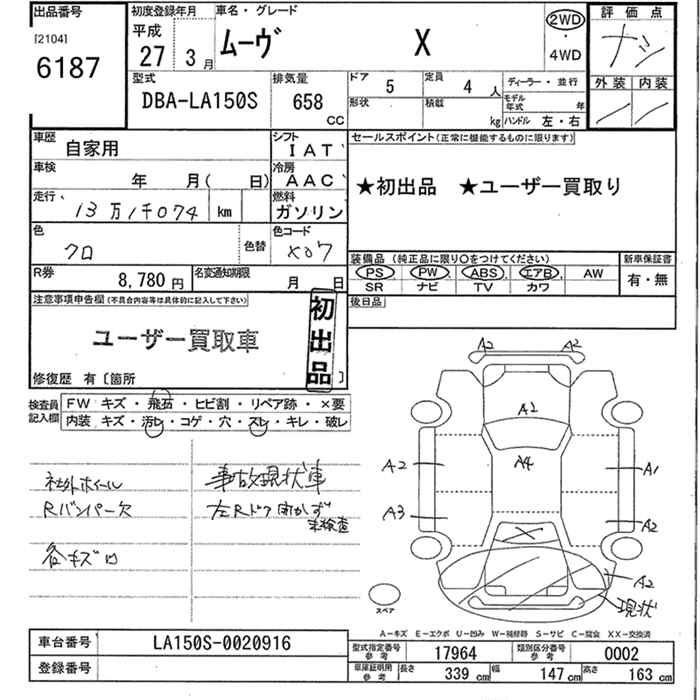 出品番号
[2104]
6187
初度登録年月
平成
27 3月
車名・グレード
ムーヴ X
2WD
・
4WD
評価点
ナシ
外装 内装
型式
DBA-LA150S
排気量
658
CC
ドア 5
定員 4 人
ディーラー・並行
形状
積載 kg
モデル年式 年
ハンドル 左・右
車歴
自家用
シフト
IAT
セールスポイント(正常に機能するものに限ります)
★初出品 ★ユーザー買取り
車検
年 月( 日)
冷房
AAC
走行
13万1千074 km
燃料
ガソリン
色
クロ
色替
色コード
X07
装備品 (純正品に限り○をつけてください)
新車保証書
PS PW ABS エアB AW
SR ナビ TV カワ
有・無
R券
8,780円
名変通知期限
月 日
後日品
注意事項申告欄(不具合内容等は具体的に記入して下さい)
ユーザー買取車
初出品
修復歴 有〔箇所 〕
検査員記入欄
FW キズ・飛石・ヒビ割・リペア跡・×要
内装 キズ・汚レ・コゲ・穴・スレ・キレ・破レ
社外ホイール
Rバンパー欠
各キズ凹
事故現状車
左Rドア開かず
未検査
A2 A2
A2
A2 A4 A1
A3 A2
A2
現状
スペア
A-キズ E-エクボ U-凹み W-補修跡 S-サビ C-腐食 XX-交換済
車台番号
LA150S-0020916
登録番号
型式指定番号
参考
17964
類別区分番号
参考
0002
車庫証明用
参考
長さ 339 cm
幅 147 cm
高さ 163 cm